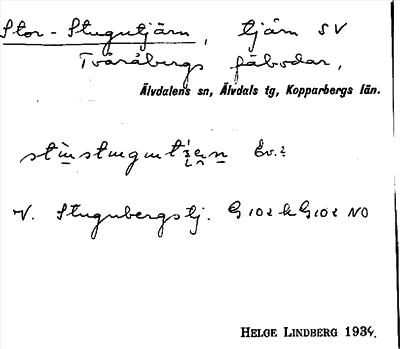 Stor-Stugutjärn, tjärn SV
Tvåråbergs fäbodar,
Älvdalens sn, Älvdals tg, Kopparbergs län.
V. Stugubergstj. G 102 k G 102 NO
HELGE LINDBERG 1934.